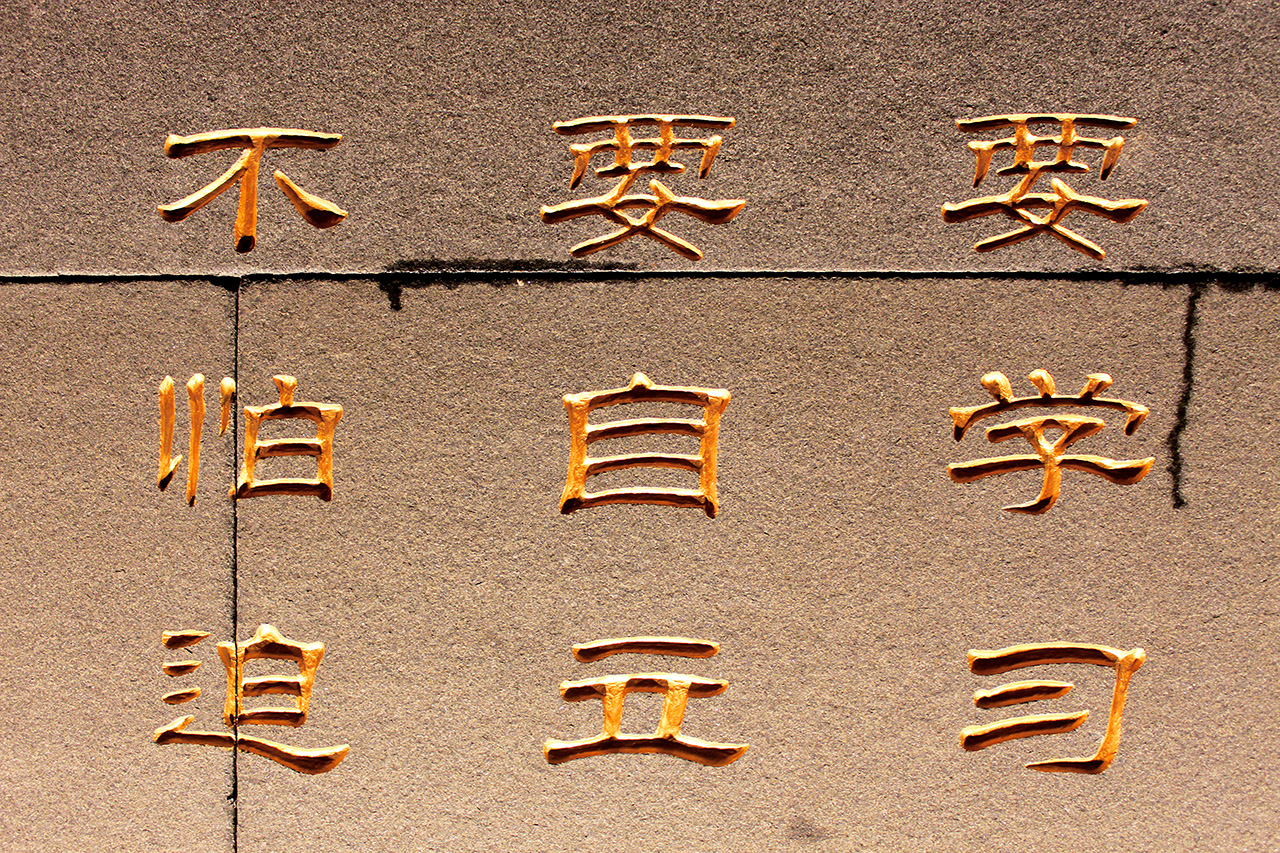 要学习
要自立
不怕迫